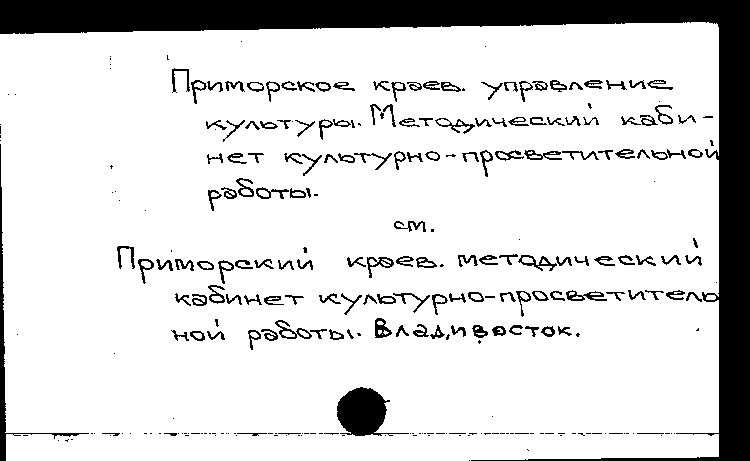 Приморское краев. управление
культуры. Методический каби-
нет культурно-просветительной
работы.
см.
Приморский краев. методический
кабинет культурно-просветитель
ной работы. Владивосток.